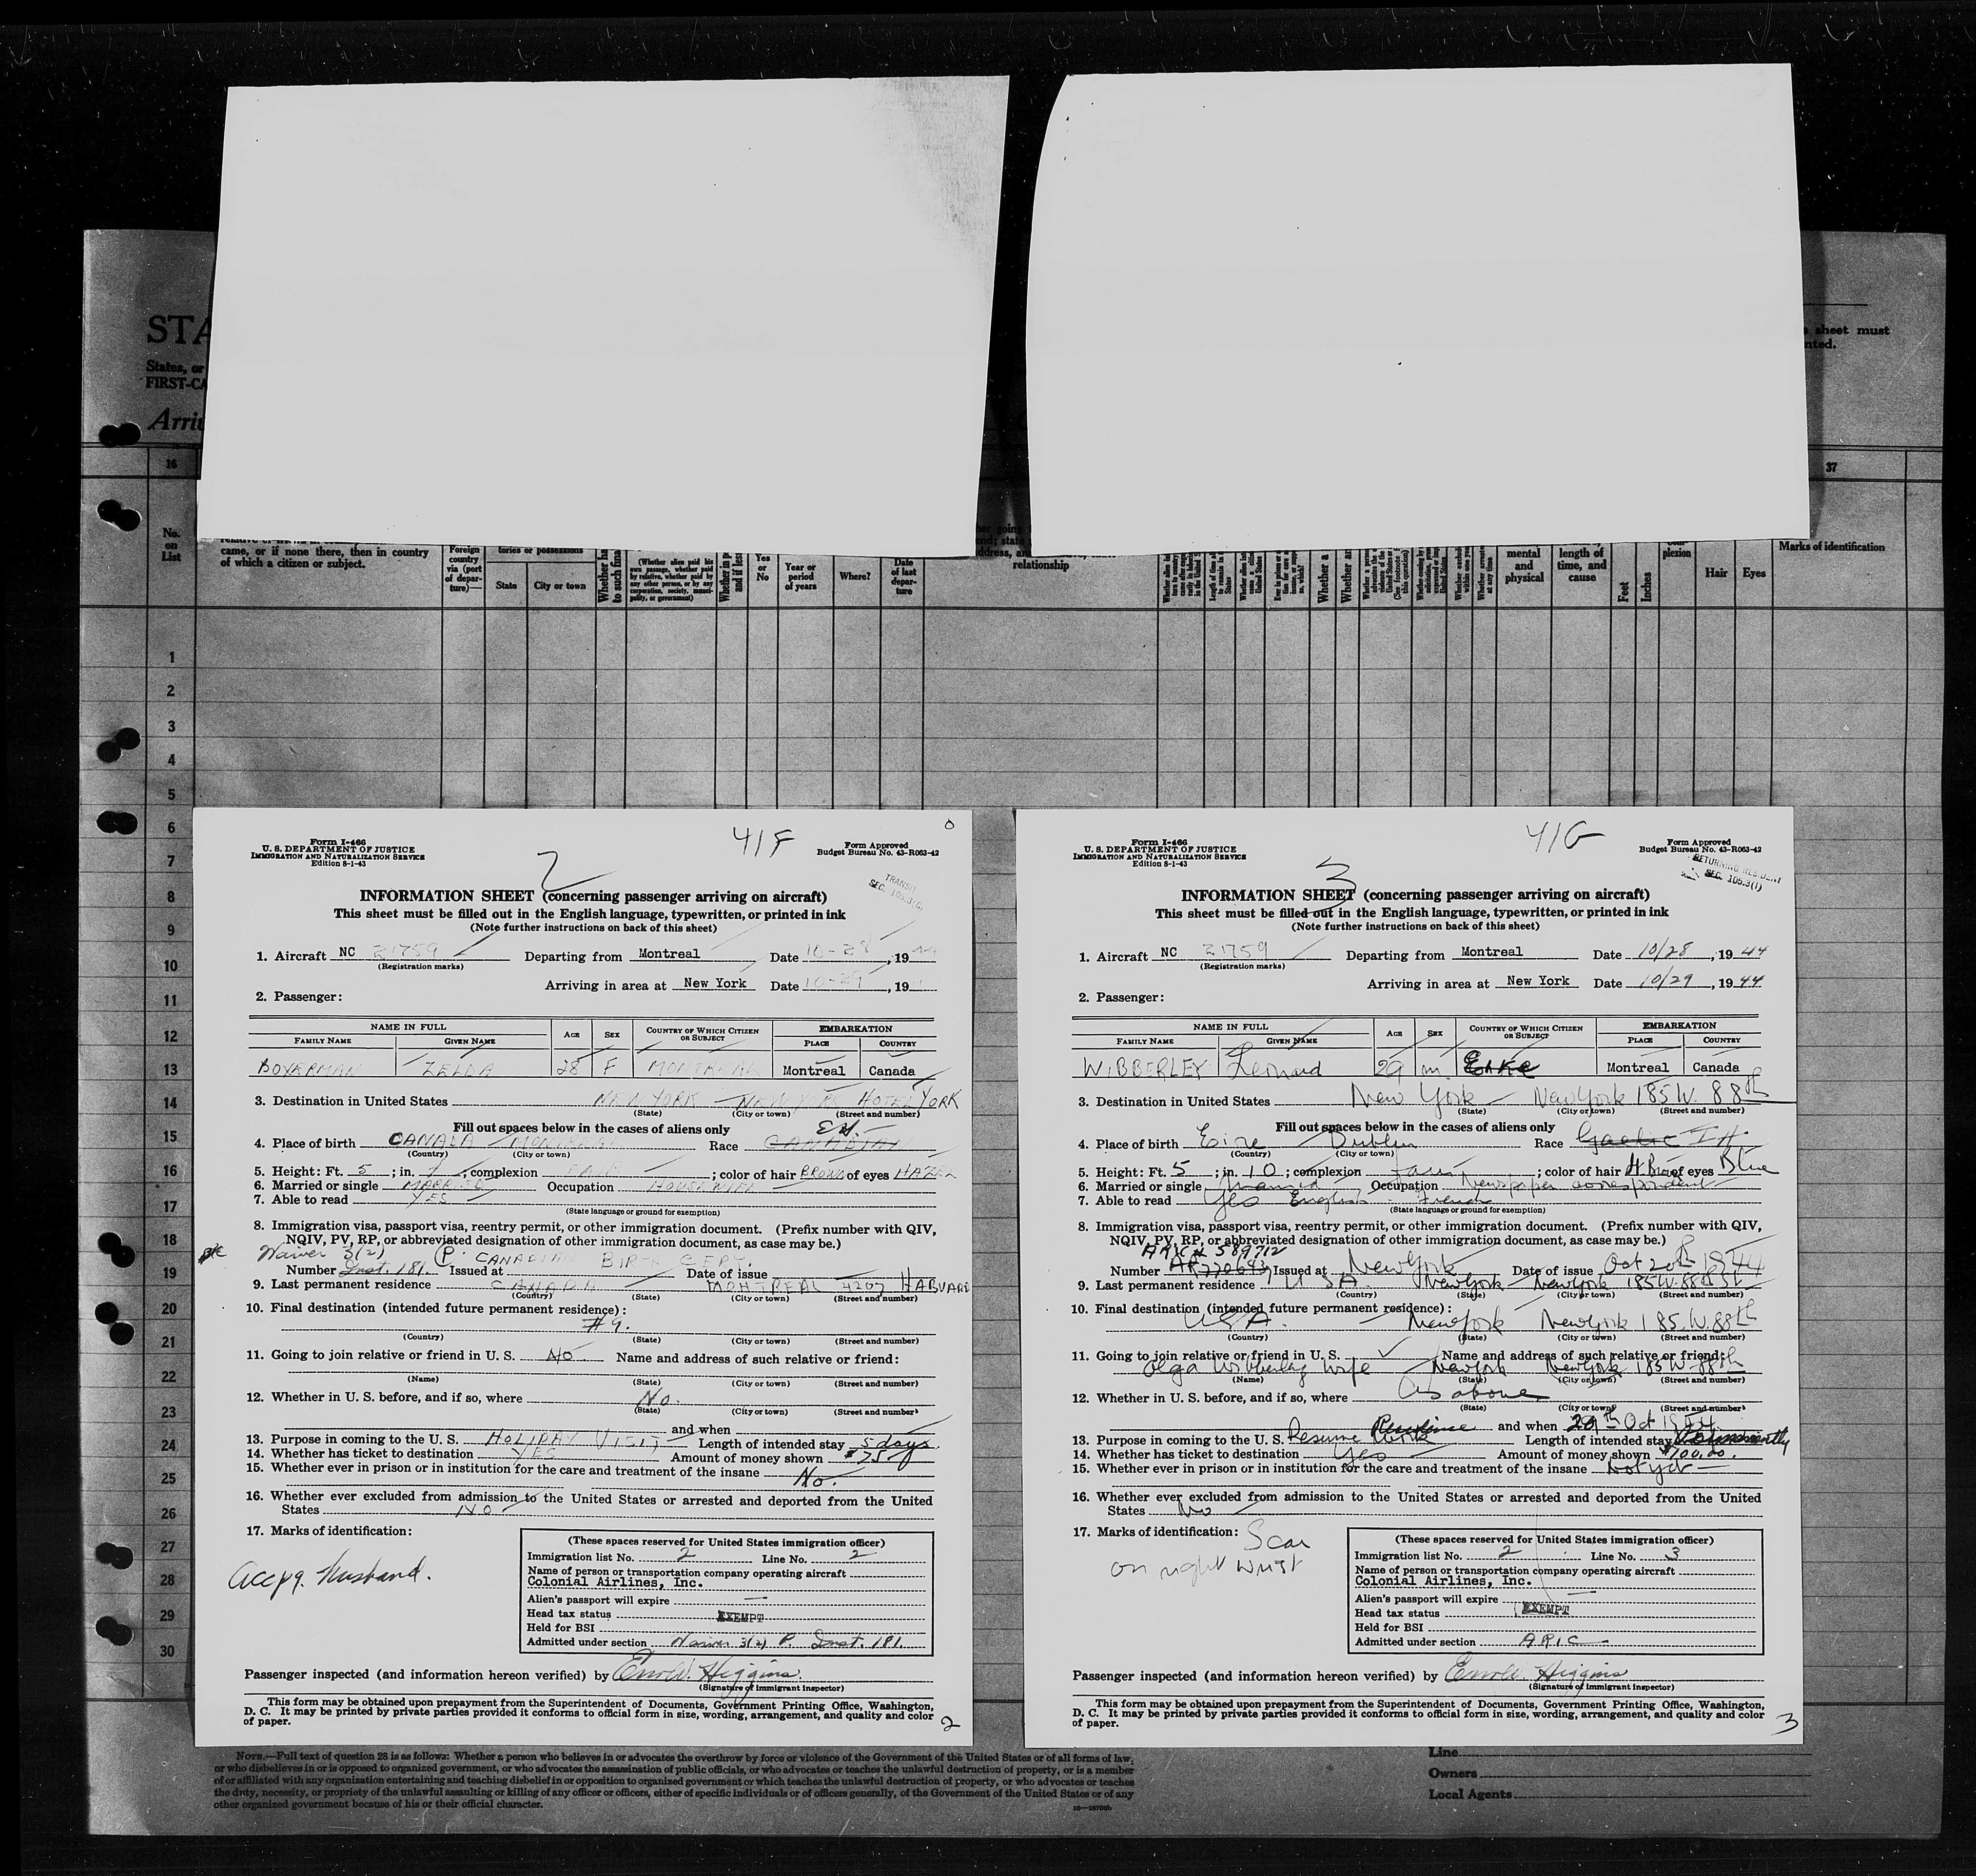 STA
States, or
FIRST-CA
Arri
sheet must
nted.
16
37
No.
on
List
came, or if none there, then in country
of which a citizen or subject.
Foreign
country
via (port
of depar-
ture)—
tories or possessions
State
City or town
(Whether alien paid his
own passage, whether paid
by relative, whether paid by
any other person, or by any
corporation, society, munici-
pality, or government)
Yes
or
No
Year or
period
of years
Where?
Date
of last
depar-
ture
relationship
mental
and
physical
length of
time, and
cause
Feet
Inches
plexion
Hair
Eyes
Marks of identification
1
2
3
4
5
6
7
8
9
10
11
12
13
14
15
16
17
18
19
20
21
22
23
24
25
26
27
28
29
30
41F
Form I-466
U. S. DEPARTMENT OF JUSTICE
IMMIGRATION AND NATURALIZATION SERVICE
Edition 8-1-43
Form Approved
Budget Bureau No. 43-R063-42
2
TRANSIT
INFORMATION SHEET (concerning passenger arriving on aircraft)
This sheet must be filled out in the English language, typewritten, or printed in ink
(Note further instructions on back of this sheet)
1. Aircraft NC 21759 Departing from Montreal Date 10-28, 1944
(Registration marks)
Arriving in area at New York Date 10-29, 19
2. Passenger:
NAME IN FULL AGE SEX COUNTRY OF WHICH CITIZEN OR SUBJECT EMBARKATION
FAMILY NAME GIVEN NAME PLACE COUNTRY
BOYERMAN ZELDA 28 F MONTREAL Montreal Canada
3. Destination in United States NEW YORK NEW YORK HOTEL YORK
(State) (City or town) (Street and number)
Fill out spaces below in the cases of aliens only
4. Place of birth CANADA MONTREAL Race CANADIAN
(Country) (City or town)
5. Height: Ft. 5; in. 7; complexion FAIR; color of hair BROWN of eyes HAZEL
6. Married or single MARRIED Occupation HOUSEWIFE
7. Able to read YES
(State language or ground for exemption)
8. Immigration visa, passport visa, reentry permit, or other immigration document. (Prefix number with QIV,
NQIV, PV, RP, or abbreviated designation of other immigration document, as case may be.)
Waiver 3(2) P. CANADIAN BIRTH CERT.
Number Inst. 181. Issued at Date of issue
9. Last permanent residence CANADA MONTREAL 4207 HARVARD
(Country) (State) (City or town) (Street and number)
10. Final destination (intended future permanent residence):
#9.
(Country) (State) (City or town) (Street and number)
11. Going to join relative or friend in U. S. NO Name and address of such relative or friend:
(Name) (State) (City or town) (Street and number)
12. Whether in U. S. before, and if so, where No.
(State) (City or town) (Street and number)
and when
13. Purpose in coming to the U. S. HOLIDAY VISIT Length of intended stay 5 days.
14. Whether has ticket to destination YES Amount of money shown $75
15. Whether ever in prison or in institution for the care and treatment of the insane
No.
16. Whether ever excluded from admission to the United States or arrested and deported from the United
States NO
17. Marks of identification:
Accpg. Husband.
(These spaces reserved for United States immigration officer)
Immigration list No. 2 Line No. 2
Name of person or transportation company operating aircraft
Colonial Airlines, Inc.
Alien's passport will expire —
Head tax status EXEMPT
Held for BSI
Admitted under section Waiver 3(2) P. Inst. 181.
Passenger inspected (and information hereon verified) by Higgins
(Signature of immigrant inspector)
This form may be obtained upon prepayment from the Superintendent of Documents, Government Printing Office, Washington,
D. C. It may be printed by private parties provided it conforms to official form in size, wording, arrangement, and quality and color
of paper.
2
41G
Form I-466
U. S. DEPARTMENT OF JUSTICE
IMMIGRATION AND NATURALIZATION SERVICE
Edition 8-1-43
Form Approved
Budget Bureau No. 43-R063-42
3
RETURNING RESIDENT
SEC. 105.3(1)
INFORMATION SHEET (concerning passenger arriving on aircraft)
This sheet must be filled out in the English language, typewritten, or printed in ink
(Note further instructions on back of this sheet)
1. Aircraft NC 21759 Departing from Montreal Date 10/28, 1944
(Registration marks)
Arriving in area at New York Date 10/29, 1944
2. Passenger:
NAME IN FULL AGE SEX COUNTRY OF WHICH CITIZEN OR SUBJECT EMBARKATION
FAMILY NAME GIVEN NAME PLACE COUNTRY
WIBBERLEY Leonard 29 m. Eire Montreal Canada
3. Destination in United States New York New York 185 W. 88th
(State) (City or town) (Street and number)
Fill out spaces below in the cases of aliens only
4. Place of birth Eire Dublin Race Gaelic IH.
(Country) (City or town)
5. Height: Ft. 5; in. 10; complexion Fair; color of hair of eyes Blue
6. Married or single Married Occupation Newspaper correspondent
7. Able to read Yes English French
(State language or ground for exemption)
8. Immigration visa, passport visa, reentry permit, or other immigration document. (Prefix number with QIV,
NQIV, PV, RP, or abbreviated designation of other immigration document, as case may be.)
ARC# 589712
Number Issued at New York Date of issue Oct 20th 1944
9. Last permanent residence USA New York New York 185 W. 88th St
(Country) (State) (City or town) (Street and number)
10. Final destination (intended future permanent residence):
USA. New York New York 185. W. 88th
(Country) (State) (City or town) (Street and number)
11. Going to join relative or friend in U. S. ✓ Name and address of such relative or friend:
Olga Wibberley wife New York New York 185 W-88th
(Name) (State) (City or town) (Street and number)
12. Whether in U. S. before, and if so, where As above
(State) (City or town) (Street and number)
and when 20th Oct 1944.
13. Purpose in coming to the U. S. Resume Residence Length of intended stay Permanently
14. Whether has ticket to destination Yes Amount of money shown $700.00.
15. Whether ever in prison or in institution for the care and treatment of the insane Not yet
16. Whether ever excluded from admission to the United States or arrested and deported from the United
States No
17. Marks of identification: Scar
on right wrist
(These spaces reserved for United States immigration officer)
Immigration list No. 2 Line No. 3
Name of person or transportation company operating aircraft
Colonial Airlines, Inc.
Alien's passport will expire —
Head tax status EXEMPT
Held for BSI
Admitted under section ARIC
Passenger inspected (and information hereon verified) by Higgins
(Signature of immigrant inspector)
This form may be obtained upon prepayment from the Superintendent of Documents, Government Printing Office, Washington,
D. C. It may be printed by private parties provided it conforms to official form in size, wording, arrangement, and quality and color
of paper.
3
NOTE.—Full text of question 28 is as follows: Whether a person who believes in or advocates the overthrow by force or violence of the Government of the United States or of all forms of law,
or who disbelieves in or is opposed to organized government, or who advocates the assassination of public officials, or who advocates or teaches the unlawful destruction of property, or is a member
of or affiliated with any organization entertaining and teaching disbelief in or opposition to organized government or which teaches the unlawful destruction of property, or who advocates or teaches
the duty, necessity, or propriety of the unlawful assaulting or killing of any officer or officers, either of specific individuals or of officers generally, of the Government of the United States or of any
other organized government because of his or their official character.
Line
Owners
Local Agents